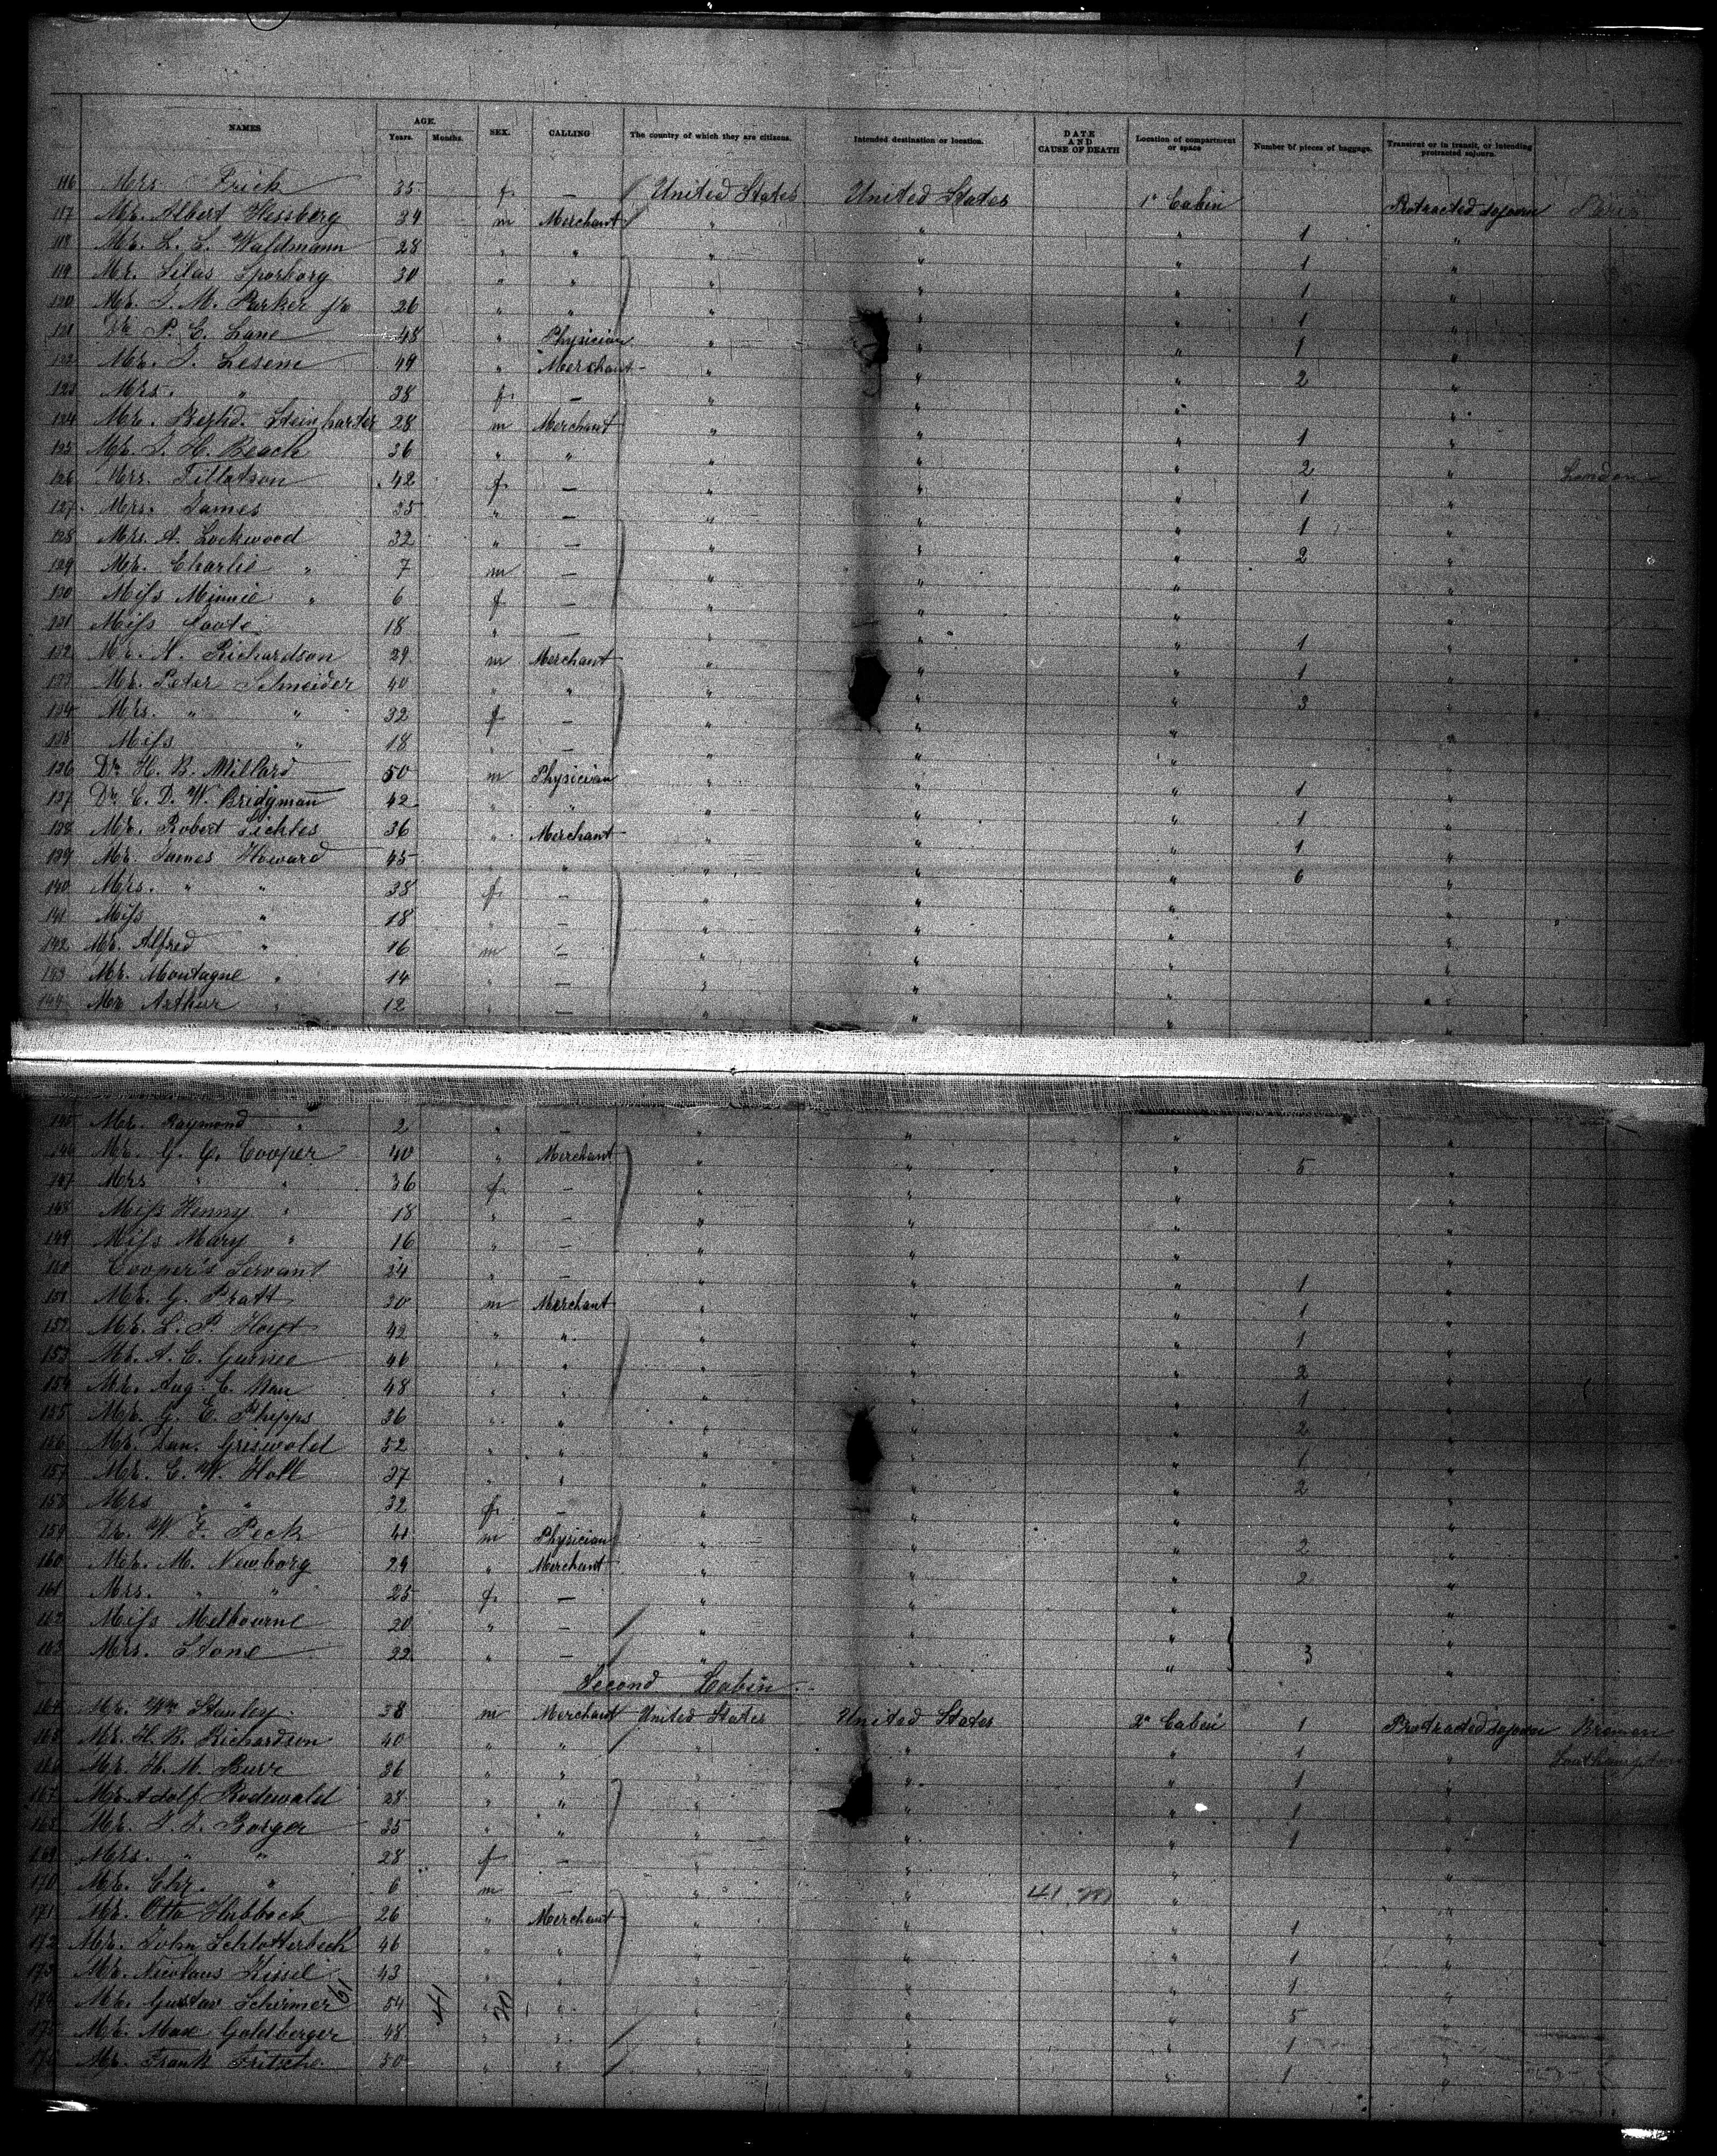 NAMES AGE. Years. Months. SEX. CALLING The country of which they are citizens. Intended destination or location. DATE AND CAUSE OF DEATH Location of compartment or space Number of pieces of baggage. Transient or in transit, or intending protracted sojourn.
116 Mrs Frick 35 f — United States United States 1" Cabin Protracted sojourn Paris
117 Mr. Albert Hessberg 34 m Merchant " " " 1 "
118 Mr. L. L. Waldmann 28 " " " " " 1 "
119 Mr. Silas Sporborg 30 " " " " " 1 "
120 Mr. J. M. Parker jr 26 " " " " " 1 "
121 Dr. P. C. Lane 48 " Physician " " " 1 "
122 Mr. J. Lesem 49 " Merchant " " " 2 "
123 Mrs. " 38 f — " " " "
124 Mr. Steinharter 28 m Merchant " " " 1 "
125 Mr. J. H. Beach 36 " " " " " 2 " London
126 Mrs. Tillotson 42 f — " " " 1 "
127 Mrs. James 35 " — " " " 1 "
128 Mrs. A. Lockwood 32 " — " " " 2 "
129 Mr. Charlie " 7 m — " " "
130 Miss Minnie " 6 f — " " "
131 Miss 18 " — " " " 1 "
132 Mr. N. Richardson 29 m Merchant " " " 1 "
133 Mr. Peter Schneider 40 " " " " " 3 "
134 Mrs. " " 32 f — " " " "
135 Miss " 18 " — " " " "
136 Dr. H. B. Millard 50 m Physician " " " 1 "
137 Dr. C. D. W. Bridgman 42 " " " " " 1 "
138 Mr. Robert Sichles 36 " Merchant " " " 1 "
139 Mr. James Howard 45 " " " " " 6 "
140 Mrs. " " 38 f — " " " "
141 Miss " 18 " — " " " "
142 Mr. Alfred " 16 m — " " " "
143 Mr. Montagne " 14 " — " " " "
144 Mr Arthur " 12 " — " " " "
145 Mr. Raymond " 2 " — " " " "
146 Mr. G. G. Cooper 40 " Merchant " " " 5 "
147 Mrs " " 36 f — " " " "
148 Miss Henny " 18 " — " " " "
149 Miss Mary " 16 " — " " " "
150 Cooper's Servant 24 " — " " " 1 "
151 Mr. G. Pratt 30 m Merchant " " " 1 "
152 Mr. L. P. Hoyt 42 " " " " " 1 "
153 Mr. A. C. Gurnee 46 " " " " " 2 "
154 Mr. Aug. C. Nau 48 " " " " " 1 "
155 Mr. G. E. Phipps 36 " " " " " 2 "
156 Mr. Dan. Griswold 52 " " " " " 1 "
157 Mr. C. W. Holl 37 " " " " " 2 "
158 Mrs " " 32 f — " " " "
159 Dr. W. F. Peck 41 m Physician " " " 2 "
160 Mr. M. Newborg 29 " Merchant " " " 2 "
161 Mrs. " " 25 f — " " " "
162 Miss Melbourne 20 " — " " " "
163 Mrs. Stone 22 " — " " " 3 "
Second Cabin.
164 Mr. Wm Stanley 38 m Merchant United States United States 2" Cabin 1 Protracted sojourn Bremen
165 Mr. H. B. Richardson 40 " " " " " 1 " Southampton
166 Mr. H. M. Burr 36 " " " " " 1 "
167 Mr. Adolf Rodewald 28 " " " " " 1 "
168 Mr. J. J. Borger 35 " " " " " 1 "
169 Mrs. " " 28 f — " " " "
170 Mr. Chr. " 6 m — " " 41, 20 " "
171 Mr. Otto Hubbock 26 " Merchant " " " 1 "
172 Mr. John Schlotterbeck 46 " " " " " 1 "
173 Mr. Nicolaus Kissel 43 " " " " " 1 "
174 Mr. Gustav Schirmer 61 54 41 " 20 " " " " 5 "
175 Mr. Max Goldberger 48 " " " " " 1 "
176 Mr. Frank Fritsche 50 " " " " " 1 "